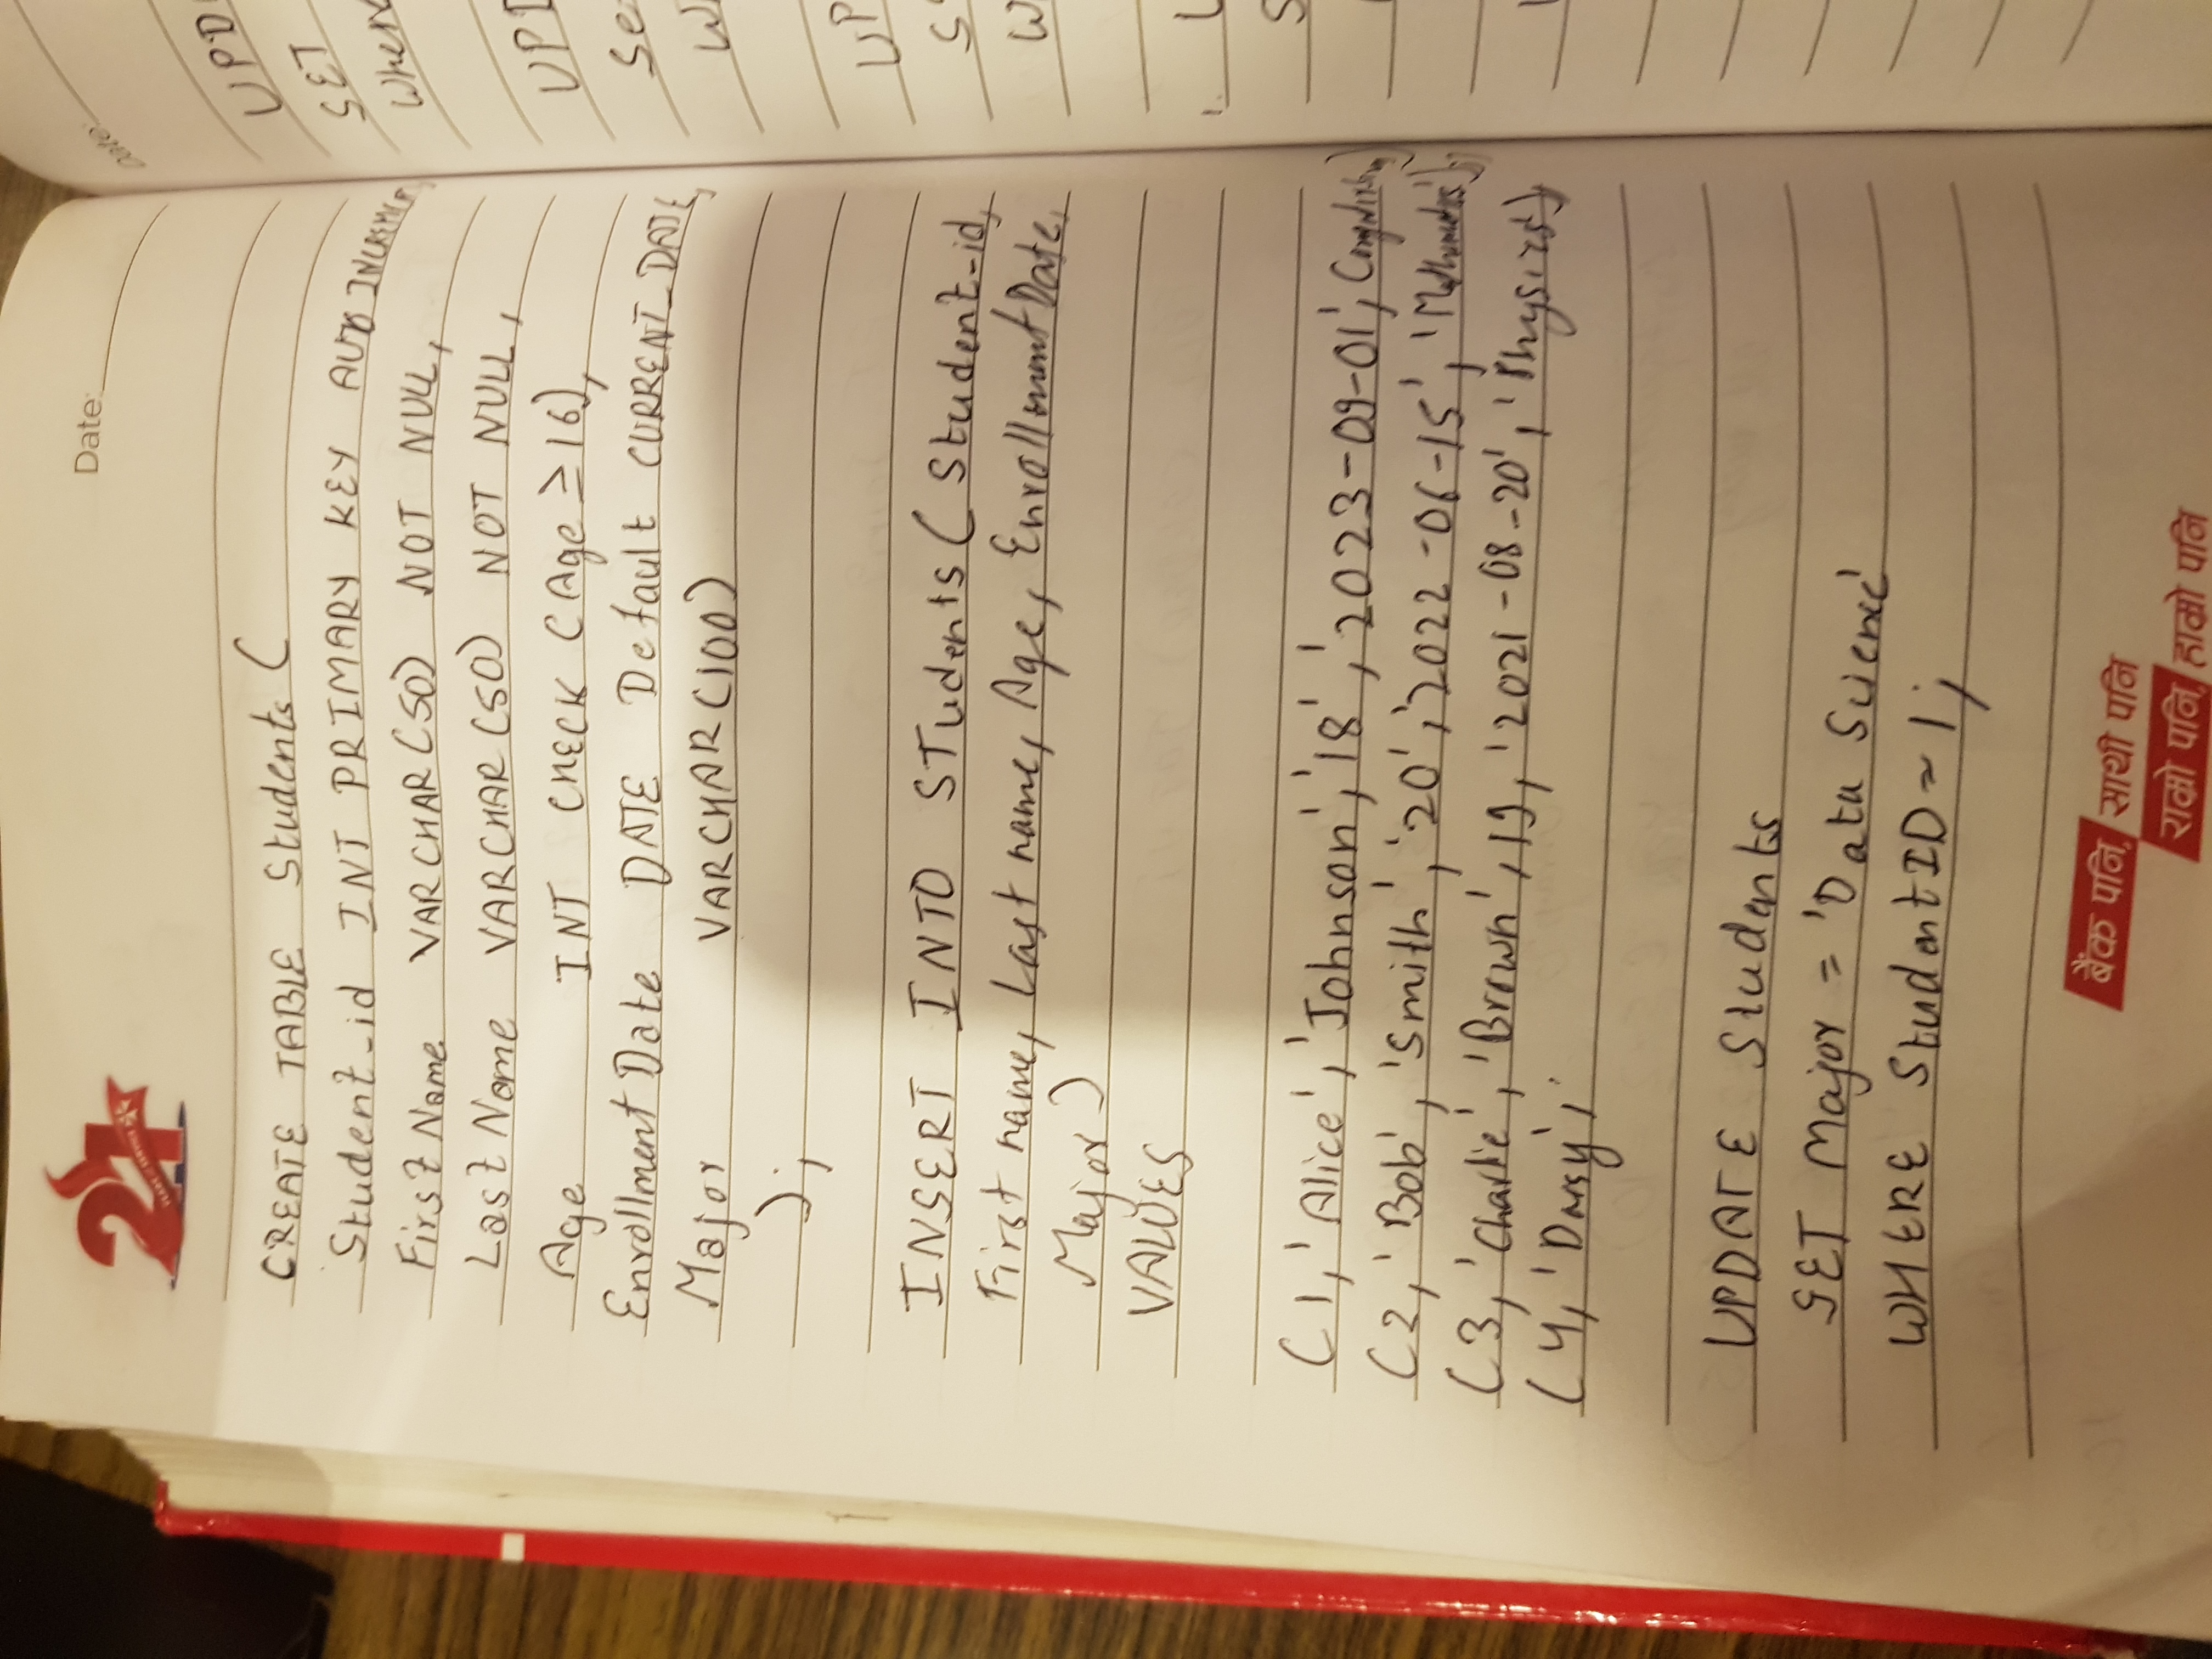 21
YEARS OF SERVICE
Date:
CREATE TABLE Students (
Student_id INT PRIMARY KEY AUTO
First Name VARCHAR (50) NOT NULL,
Last Name VARCHAR (50) NOT NULL,
Age INT CHECK (Age ≥ 16),
Enrollment Date DATE Default CURRENT_DATE,
Major VARCHAR (100)
);
INSERT INTO STudents ( Student_id,
First name, Last name, Age, Enrollment Date,
Major)
VALUES
(1, 'Alice', 'Johnson', '18', '2023-09-01',
(2, 'Bob', 'Smith', '20', '2022-06-15',
(3, 'Charlie', 'Brown', 19, '2021-08-20',
(4, 'Daisy',
UPDATE Students
SET Major = 'Data Science'
WHERE StudentID = 1;
बैंक पनि, साथी पनि
राम्रो पनि, हाम्रो पनि
Date:
SET